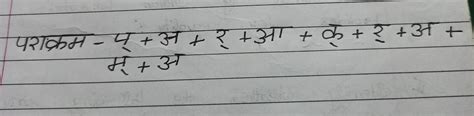 पराक्रम - प् + अ + र् + आ + क् + र् + अ +
म् + अ